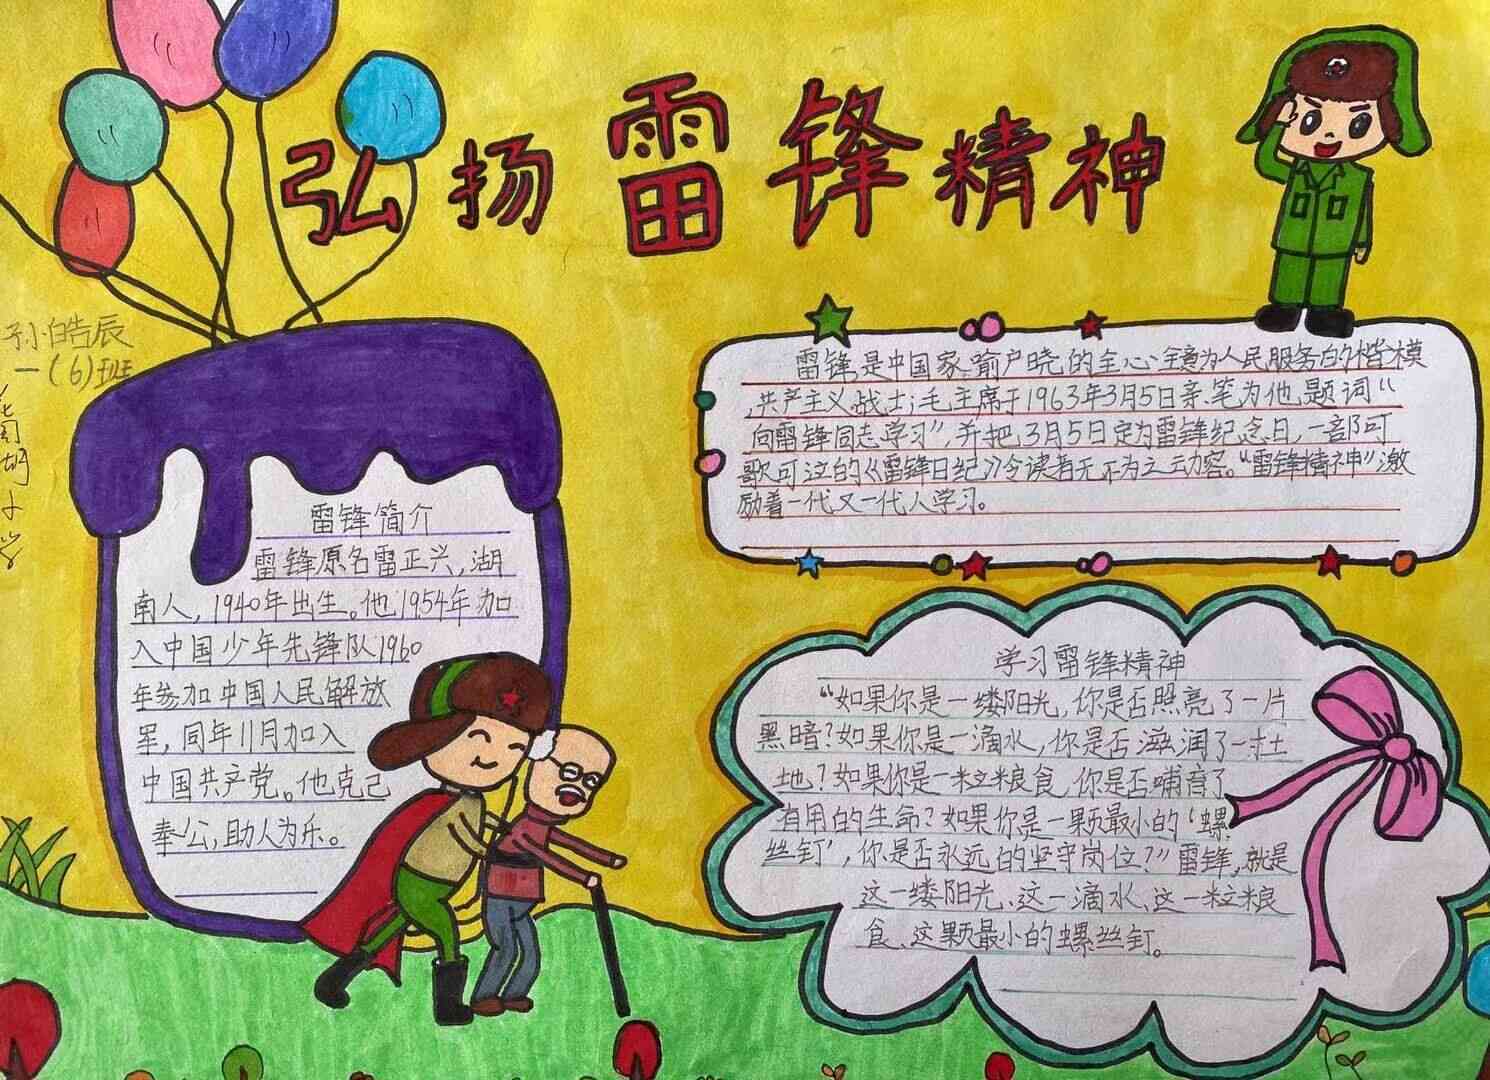 弘扬雷锋精神
孙皓辰
一(6)班
雷锋是中国家喻户晓的全心全意为人民服务的楷模
,共产主义战士;毛主席于1963年3月5日亲笔为他题词“
向雷锋同志学习”,并把3月5日定为雷锋纪念日,一部可
歌可泣的《雷锋日纪》令读者无不为之动容。“雷锋精神”激
励着一代又一代人学习。
雷锋简介
雷锋原名雷正兴,湖
南人,1940年出生。他1954年加
入中国少年先锋队1960
年参加中国人民解放
军,同年11月加入
中国共产党。他克己
奉公,助人为乐。
学习雷锋精神
“如果你是一缕阳光,你是否照亮了一片
黑暗?如果你是一滴水,你是否滋润了一寸土
地?如果你是一粒粮食,你是否哺育了
有用的生命?如果你是一颗最小的‘螺
丝钉’,你是否永远的坚守岗位?”雷锋,就是
这一缕阳光、这一滴水、这一粒粮
食、这颗最小的螺丝钉。